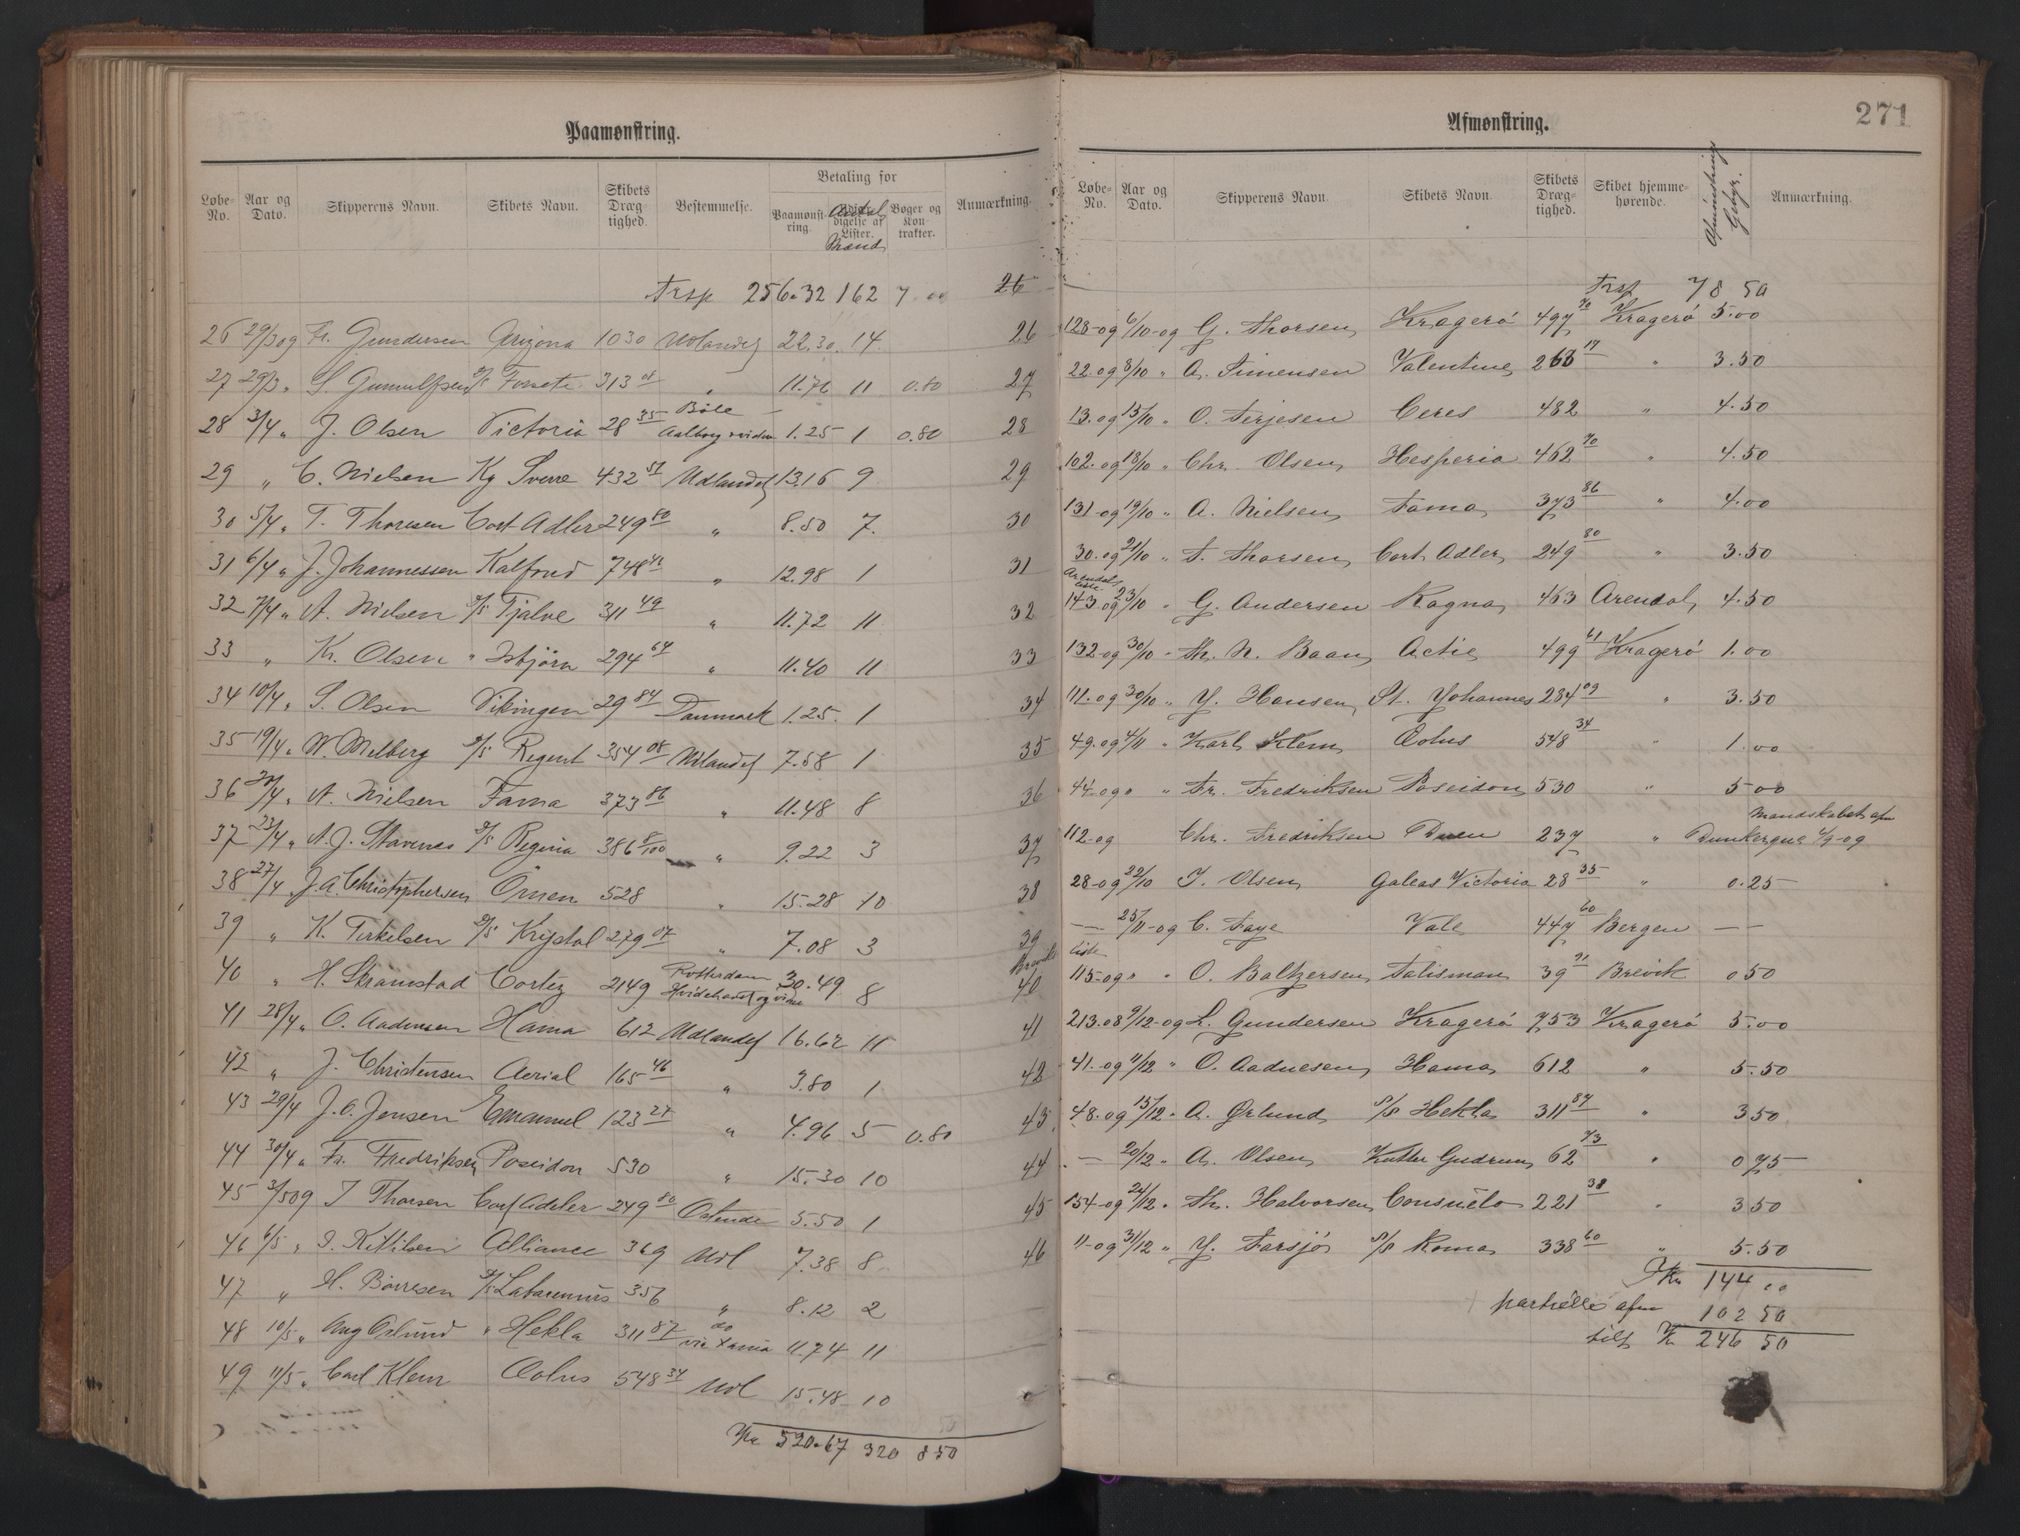 Paamønstring.
Løbe-No. Aar og Dato. Skipperens Navn. Skibets Navn. Skibets Drægtighed. Bestemmelse. Betaling for Paamønstring. Antal Mænd Bøger og Kontrakter. Anmærkning.
Trsp 256.32 162 7.00 26
26 29/3 09 Fr. Gundersen Arizona 1030 Udlandet 22.30 14 26
27 29/3 " S. Gunnulfsen S/S Forsete 313 08 " 11.76 11 0.80 27
28 3/4 " J. Olsen Victoria 28 35 Bôle Aalborg 1.25 1 0.80 28
29 " C. Nielsen Kg Sverre 432 57 Udlandet 13.16 9 29
30 5/4 " T. Thoresen Cort Adler 249 80 " 8.50 7. 30
31 6/4 " J. Johannessen Kalfond 748 42 " 12.98 1 31
32 7/4 " A. Nielsen S/S Tjalve 311 49 " 11.72 11 32
33 " Kr. Olsen " Isbjörn 294 64 " 11.40 11 33
34 10/4 " S. Olsen Vikingen 29 84 Danmark 1.25 1 34
35 19/4 " W. Melberg S/S Regent 354 08 Udlandet 7.58 1 35
36 20/4 " A. Nielsen Fama 373 86 " 11.48 8 36
37 23/4 " A. J. Stavenes S/S Regina 386 8/100 " 9.22 3 37
38 27/4 J. A. Christophersen Örnen 528 " 15.28 10 38
39 " K. Terkelsen S/S Krystal 279 07 " 7.08 3 39
40 " H. Skramstad Cortez 2149 Rotterdam Hvidehavet og videre 30.49 8 Brevik 40
41 28/4 " O. Aadnesen Hama 612 Udlandet 16.62 11 41
42 " J. Christensen Aerial 165 46 " 3.80 1 42
43 29/4 J. O. Jensen Emanuel 123 27 " 4.96 5 0.80 43
44 30/4 " Fr. Fredriksen Poseidon 530 " 15.30 10 44
45 3/5 09 T Thorsen Cort Adeler 249 80 Ostende 5.50 1 45
46 6/5 " S. Kittilsen Alliance 369 Udl 7.38 8 46
47 " H. Börresen S/S 356 " 8.12 2
48 10/5 " Aug Örlund " Hekla 311 87 do via 11.74 11
49 11/5 " Carl Klem Æolus 548 34 Udl 15.48 10
Kr 520.67 320 8 50
271
Afmønstring.
Løbe-No. Aar og Dato. Skipperens Navn. Skibets Navn. Skibets Drægtighed. Skibet hjemmehørende. Afmönstrings Gebyr. Anmærkning.
Trsp 78 50
128-09 6/10-09 G. Thorsen Kragerö 497 70 Kragerö 5.00
22-09 8/10 " A. Simensen Valentine 268 17 " 3.50
13-09 15/10 " O. Terjesen Ceres 482 " 4.50
102-09 18/10 " Chr. Olsen Hesperia 462 70 " 4.50
131-09 19/10 " A. Nielsen Fama 373 86 " 4.00
30-09 21/10 " T. Thorsen Cort Adler 249 80 " 3.50
Arendals liste
143-09 23/10 " G. Andersen Ragna 463 Arendal 4.50
132-09 30/10 " Th. N. Baan Actie 499 61 Kragerö 1.00
111-09 30/10 " Y. Hansen St. Yohannes 284 09 " 3.50
49-09 4/11 " Karl Klem Æolus 548 34 " 1.00
44-09 " " Fr. Fredriksen Poseidon 530 " 5 00
112-09 Chr. Fredriksen 237 " Mandskabet afm Dunkerque 4/9-09
28-09 22/10 J. Olsen Galeas Victoria 28 35 " 0.25
— 25/11-09 C. Faye Vale 447 60 Bergen — —
liste
115-09 " " O. Baltzersen Talisman 39 91 Brevik 0 50
213-08 9/12-09 L. Gundersen Kragerö 753 Kragerö 5.00
41-09 11/12 " O. Aadnesen Hama 612 " 5.50
48-09 15/12 " A. Ørlund S/S Hekla 311 87 " 3 50
— 20/12 " A. Olsen Kutter Gudrun 62 73 " 0 75
154-09 24/12 " Th. Halvorsen Consuelo 221 38 " 3 50
11-09 31/12 " Y. Farsjö S/S Roma 338 60 " 5.50
Kr 144 00
partielle afm 102 50
tils Kr 246 50